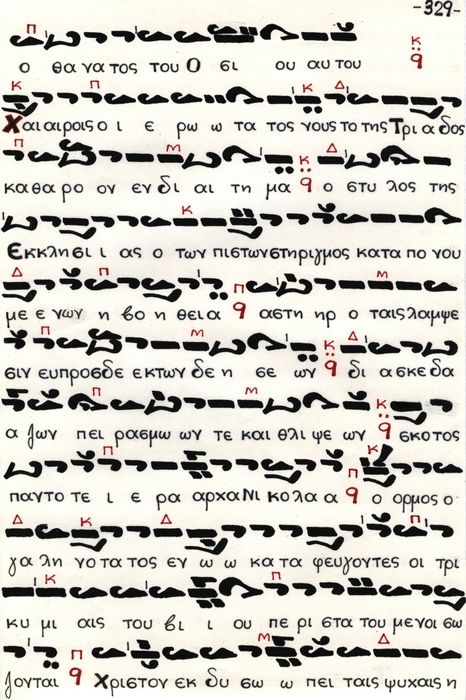 -329-
ο θα να τος του Ο σι ου αυ του
Χαι αι ροις ο ι ε ρω ω τα τος νους το της Τρι α δος
κα θα ρο ον εν δι αι τη μα ο στυ λος της
Εκ κλη σι ι ας ο των πι στων στη ριγ μος κα τα πο νου
με ε νων η βο η θει α α στη ηρ ο ταις λαμ ψε
σιν ευ προσ δε εκ των δε η σε ων δι α σκε δα
α ζων πει ρα σμω ων τε και θλι ψε ων σκο τος
παν το τε ι ε ρα αρ χα Νι κο λα α ο ορ μος ο
γα λη νο τα τος εν ω ω κα τα φευ γον τες οι τρι
κυ μι αις του βι ι ου πε ρι στα του με νοι σω
ζον ται Χρι στον εκ δυ σω ω πει ταις ψυ χαις η